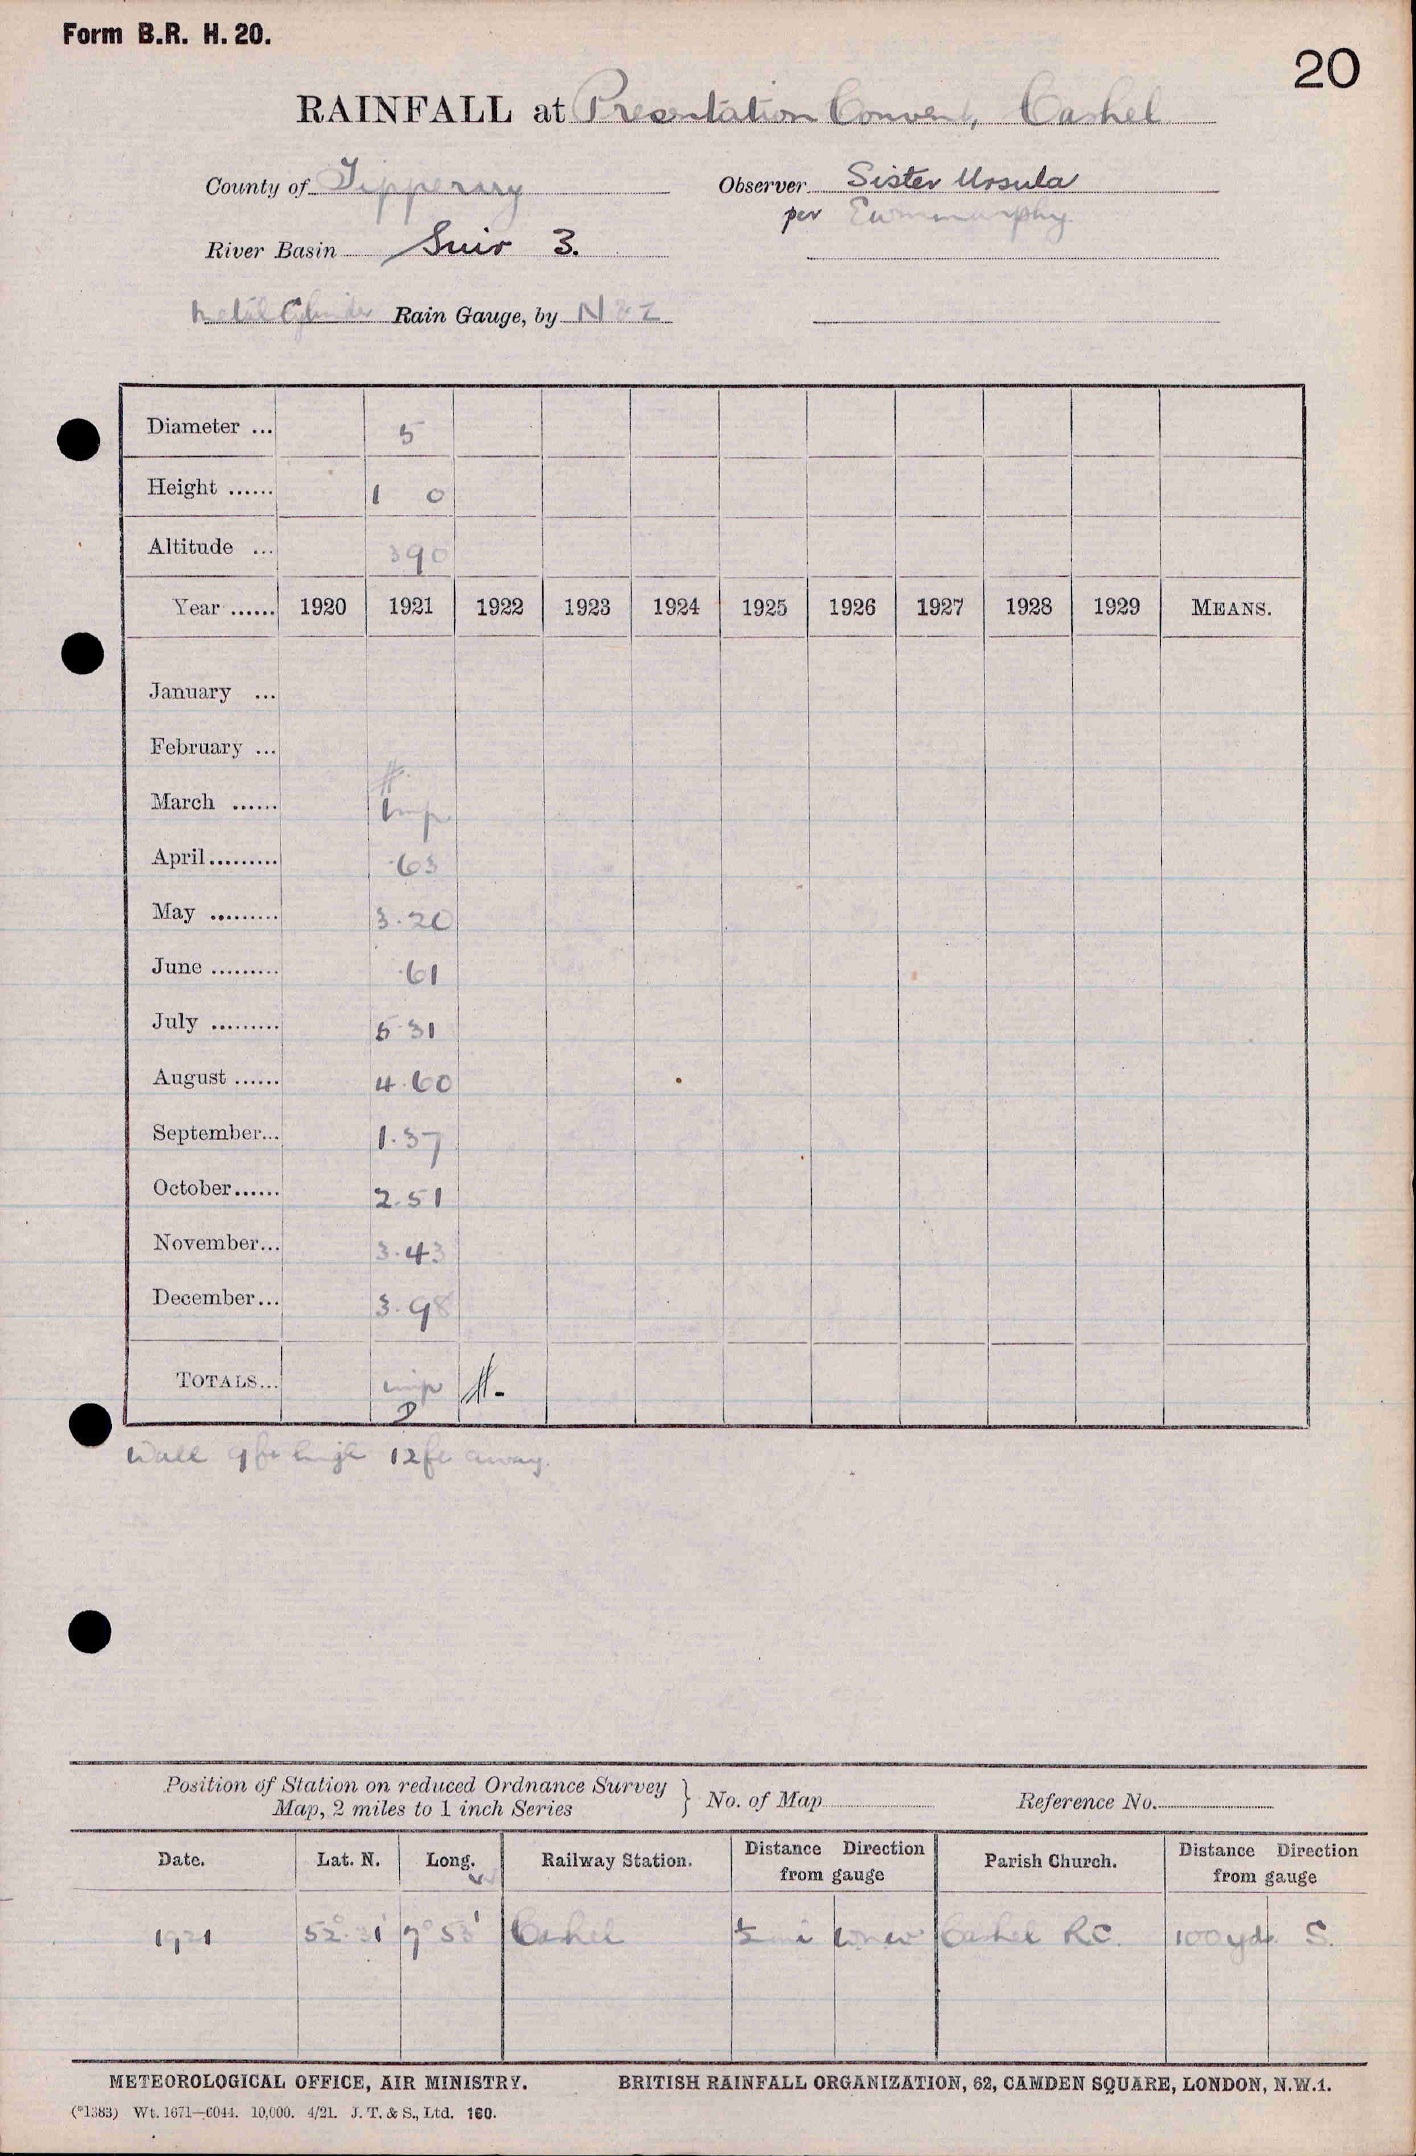 Form B.R. H. 20.
20
RAINFALL at Presentation Convent, Cashel
County of Tipperary
Observer Sister Ursula
per
River Basin Suir 3.
Metal Cylinder Rain Gauge, by N & Z
Diameter ... 5
Height ...... 1 0
Altitude ... 390
Year ...... 1920 1921 1922 1923 1924 1925 1926 1927 1928 1929 MEANS.
January ...
February ...
#
March ...... Imp
April......... .63
May ......... 3.20
June ......... .61
July ......... 5.31
August ...... 4.60
September... 1.37
October...... 2.51
November... 3.43
December... 3.98
TOTALS... imp #-
D
Wall 9ft high 12ft away.
Position of Station on reduced Ordnance Survey
Map, 2 miles to 1 inch Series } No. of Map Reference No.
Date. Lat. N. Long. W Railway Station. Distance Direction from gauge Parish Church. Distance Direction from gauge
1921 52° 31' 7° 53' Cashel ½ mi WNW Cashel R.C. 100 yds S.
METEOROLOGICAL OFFICE, AIR MINISTRY. BRITISH RAINFALL ORGANIZATION, 62, CAMDEN SQUARE, LONDON, N.W.1.
(*1383) Wt. 1671—6044. 10,000. 4/21. J. T. & S., Ltd. 160.